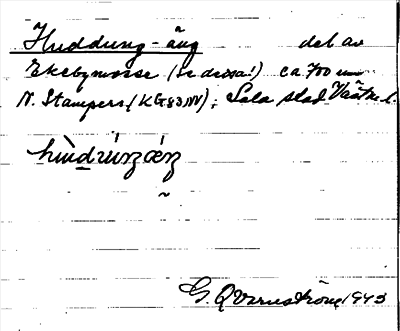 Huddung-äng del av
Ekebymosse (se dessa!) ca 700 m
N. Stampers (KG83NV); Sala stad Västm. l.
hùdúŋäŋ
G. Q Varnström 1943